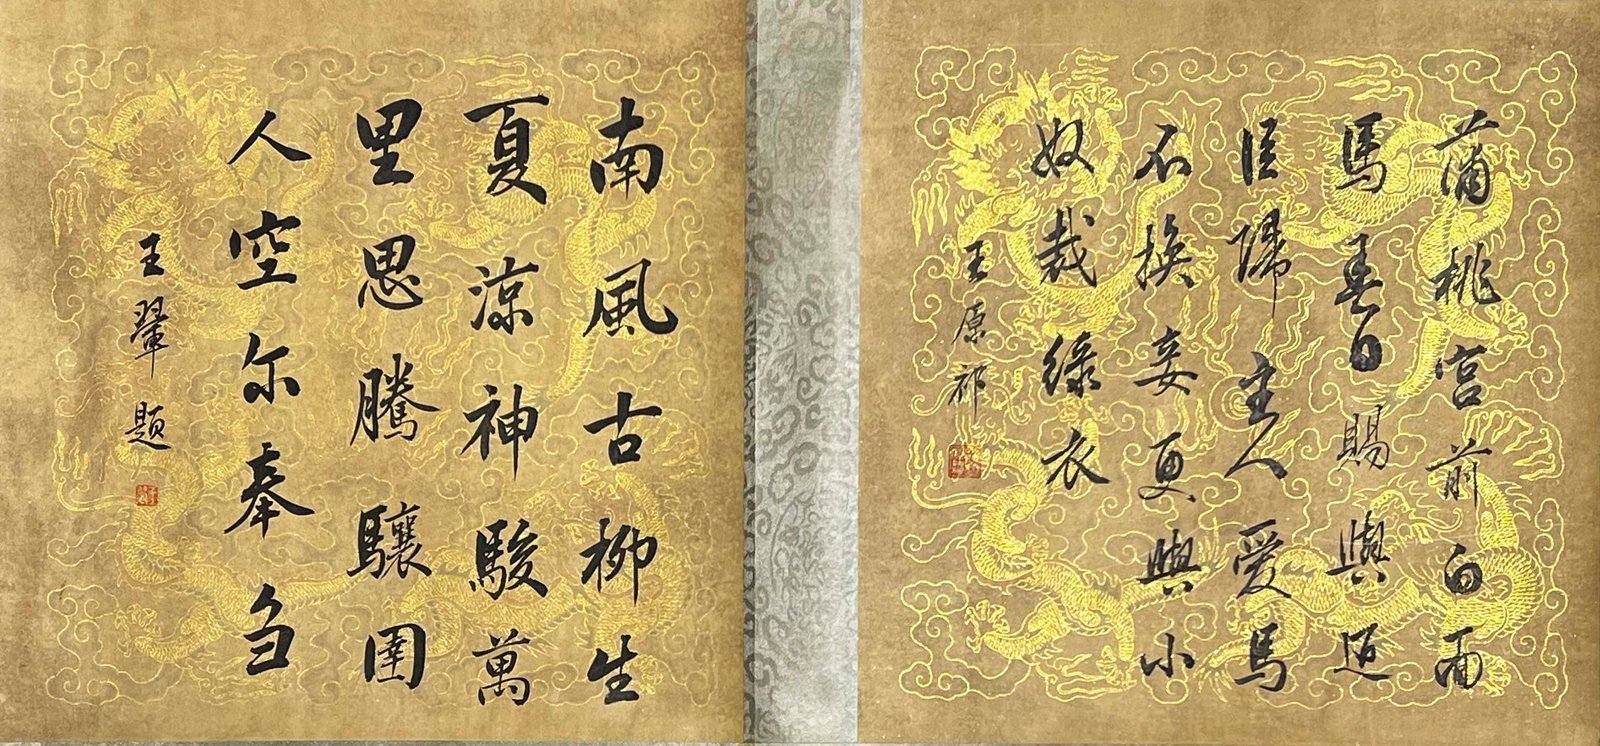 蒲桃宫前白面
馬春日賜與近
臣歸主人愛馬
不換妾更與小
奴裁綠衣
王原祁
南風古柳生
夏涼神駿萬
里思騰驤圉
人空尔奉刍
王翬題